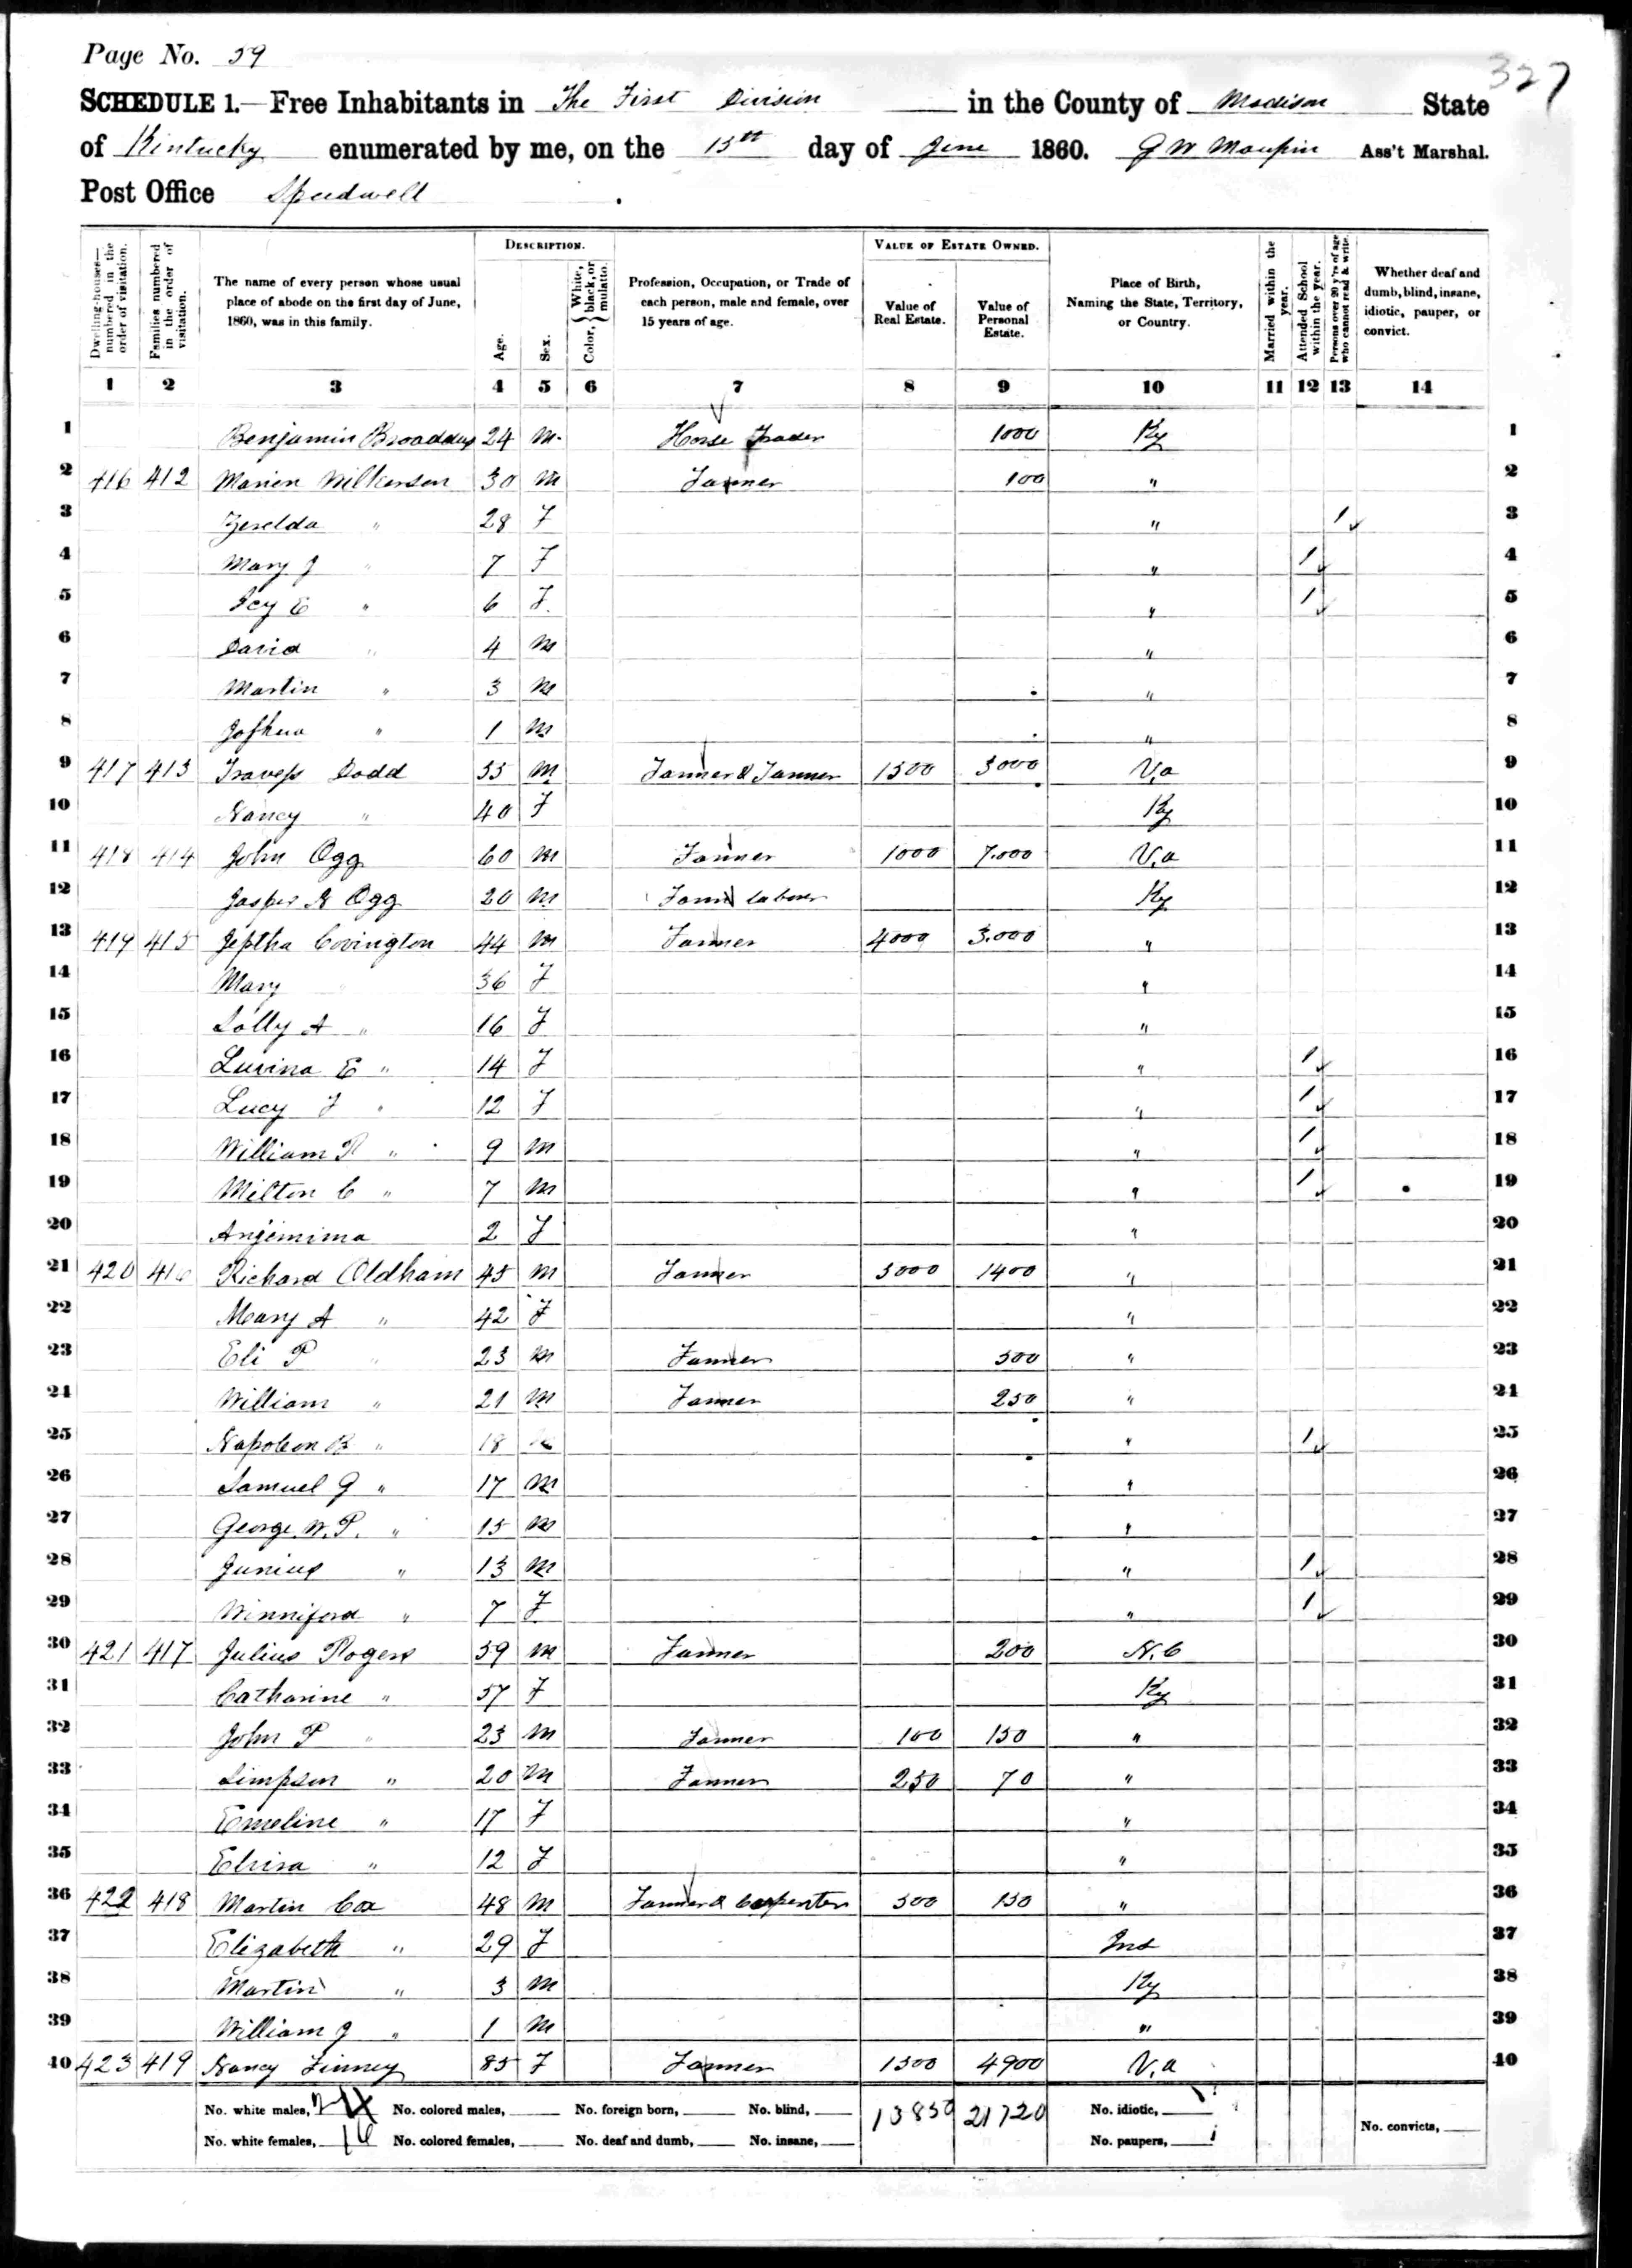 Page No. 59
327
SCHEDULE 1.—Free Inhabitants in The First Division in the County of Madison State
of Kentucky enumerated by me, on the 15th day of June 1860. G W Maupin Ass't Marshal.
Post Office Speedwell
Dwelling-houses—numbered in the order of visitation.
Families numbered in the order of visitation.
The name of every person whose usual place of abode on the first day of June, 1860, was in this family.
DESCRIPTION.
Age.
Sex.
Color, White, black, or mulatto.
Profession, Occupation, or Trade of each person, male and female, over 15 years of age.
VALUE OF ESTATE OWNED.
Value of Real Estate.
Value of Personal Estate.
Place of Birth, Naming the State, Territory, or Country.
Married within the year.
Attended School within the year.
Persons over 20 y'rs of age who cannot read & write.
Whether deaf and dumb, blind, insane, idiotic, pauper, or convict.
1 2 3 4 5 6 7 8 9 10 11 12 13 14
1 Benjamin Broaddus 24 m Horse Trader 1000 Ky 1
2 416 412 Marien Wilkerson 30 m Farmer 100 " 2
3 Zerelda " 28 F " 1 3
4 Mary J " 7 F " 1 4
5 Icy E " 6 F " 1 5
6 David " 4 m " 6
7 Martin " 3 m " 7
8 Joshua " 1 m " 8
9 417 413 Travess Dodd 55 m Farmer & Tanner 1500 3000 Va 9
10 Nancy " 40 F Ky 10
11 418 414 John Ogg 60 m Farmer 1000 7.000 Va 11
12 Jasper N Ogg 20 m Farm laborer Ky 12
13 419 415 Jeptha Covington 44 m Farmer 4000 3.000 " 13
14 Mary " 36 F " 14
15 Sally A " 16 F " 15
16 Lurina E " 14 F " 1 16
17 Lucy F " 12 F " 1 17
18 William R " 9 m " 1 18
19 Milton C " 7 m " 1 19
20 Angemima 2 F " 20
21 420 416 Richard Oldham 45 m Farmer 5000 1400 " 21
22 Mary A " 42 F " 22
23 Eli P " 23 m Farmer 500 " 23
24 William " 21 m Farmer 250 " 24
25 Napoleon B " 18 m " 1 25
26 Samuel G " 17 m " 26
27 George W. P. " 15 m " 27
28 Junius " 13 m " 1 28
29 Winniford " 7 F " 1 29
30 421 417 Julius Rogers 59 m Farmer 200 N.C 30
31 Catharine " 57 F Ky 31
32 John P " 23 m Farmer 100 150 " 32
33 Simpson " 20 m Farmer 250 70 " 33
34 Emeline " 17 F " 34
35 Elvira " 12 F " 35
36 422 418 Martin Cox 48 m Farmer & Carpenter 500 150 " 36
37 Elizabeth " 29 F Ind 37
38 Martin " 3 m Ky 38
39 William J " 1 m " 39
40 423 419 Nancy Finney 85 F Farmer 1500 4900 Va 40
No. white males, 24 No. colored males, No. foreign born, No. blind, 13850 21720 No. idiotic,
No. white females, 16 No. colored females, No. deaf and dumb, No. insane, No. paupers, No. convicts,